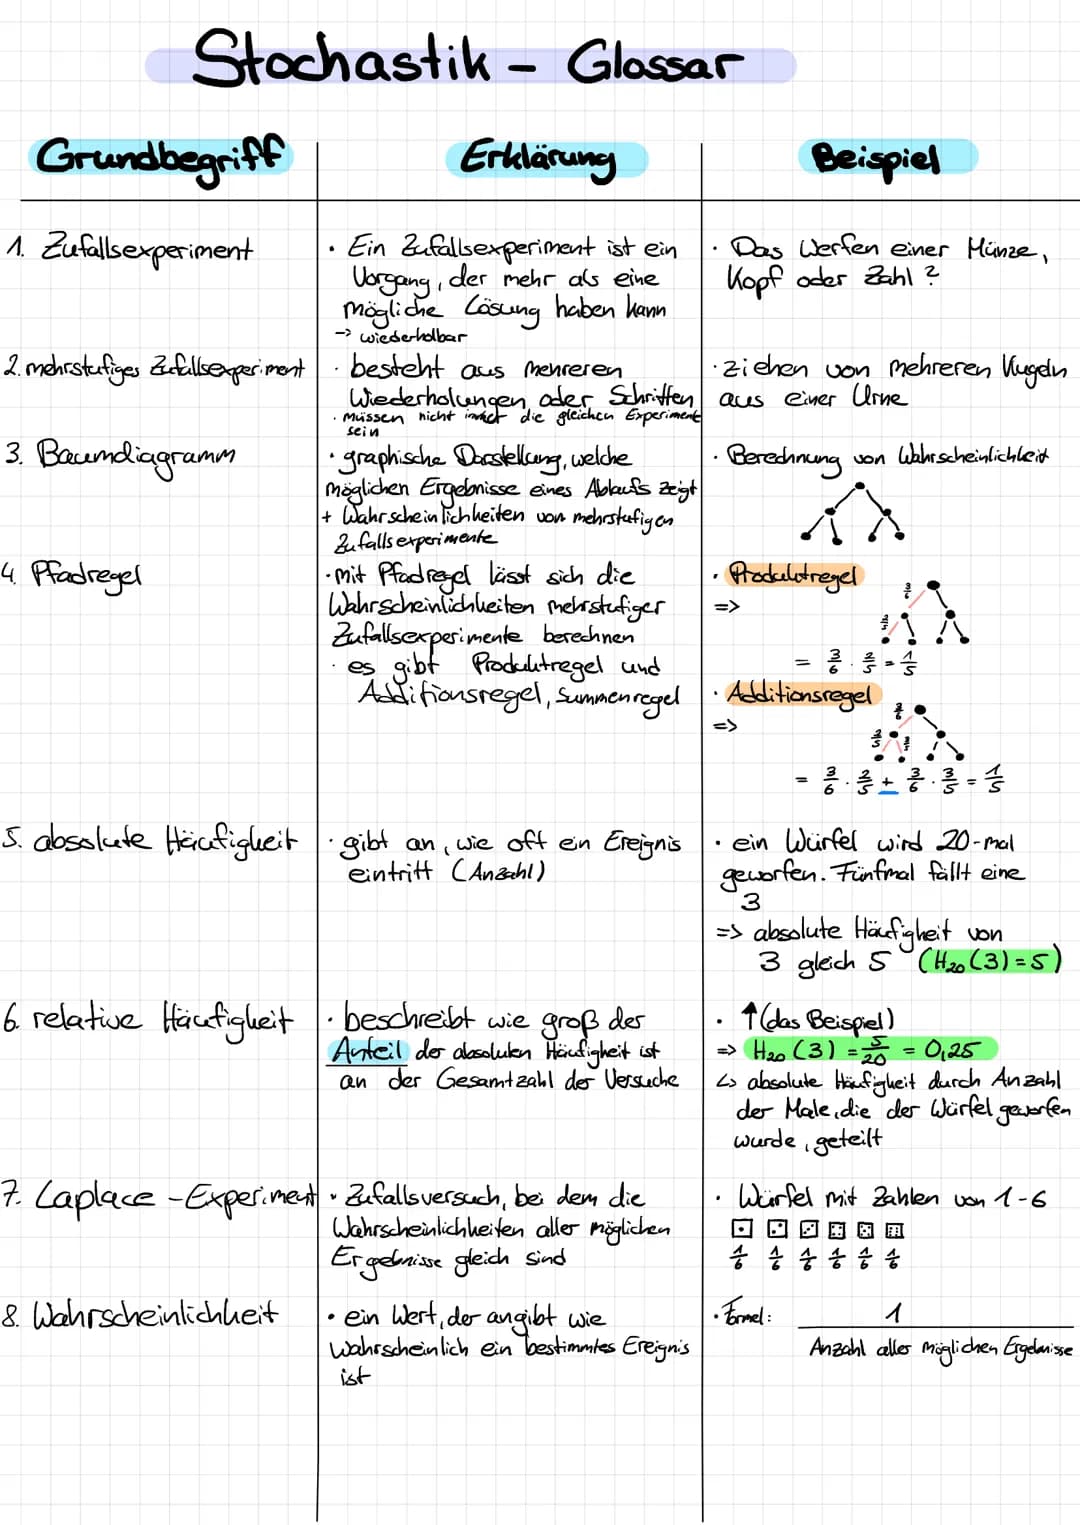 Stochastik - Glossar
Grundbegriff
Erklärung
Beispiel
1. Zufallsexperiment
· Ein Zufallsexperiment ist ein
Vorgang, der mehr als eine
mögliche Lösung haben kann
-> wiederholbar
· Das Werfen einer Münze,
Kopf oder Zahl?
2. mehrstufiges Zufallsexperiment
· besteht aus mehreren
Wiederholungen oder Schritten
· müssen nicht die gleichen Experimente
sein
· ziehen von mehreren Kugeln
aus einer Urne
3. Baumdiagramm
· graphische Darstellung, welche
möglichen Ergebnisse eines Ablaufs zeigt
+ Wahrscheinlichkeiten von mehrstufigen
Zufallsexperimente
· Berechnung von Wahrscheinlichkeit
4. Pfadregel
· mit Pfadregel lässt sich die
Wahrscheinlichkeiten mehrstufiger
Zufallsexperimente berechnen
· es gibt Produktregel und
Additionsregel, Summenregel
· Produktregel
=>
3/6
= 3/6 · 2/5 = 1/5
· Additionsregel
=>
3/6
2/5
= 3/6 · 2/5 + 3/6 · 3/5 = 1/5
5. absolute Häufigkeit
· gibt an, wie oft ein Ereignis
eintritt (Anzahl)
· ein Würfel wird 20-mal
geworfen. Fünfmal fällt eine
3
=> absolute Häufigkeit von
3 gleich 5 (H₂₀(3)=5)
6. relative Häufigkeit
· beschreibt wie groß der
Anteil der absoluten Häufigkeit ist
an der Gesamtzahl der Versuche
· ↑(das Beispiel)
=> H₂₀(3) = 5/20 = 0,25
↳ absolute Häufigkeit durch Anzahl
der Male, die der Würfel geworfen
wurde, geteilt
7. Laplace-Experiment
· Zufallsversuch, bei dem die
Wahrscheinlichkeiten aller möglichen
Ergebnisse gleich sind
· Würfel mit Zahlen von 1-6
1/6 1/6 1/6 1/6 1/6 1/6
8. Wahrscheinlichkeit
· ein Wert, der angibt wie
wahrscheinlich ein bestimmtes Ereignis
ist
· Formel:
1
Anzahl aller möglichen Ergebnisse